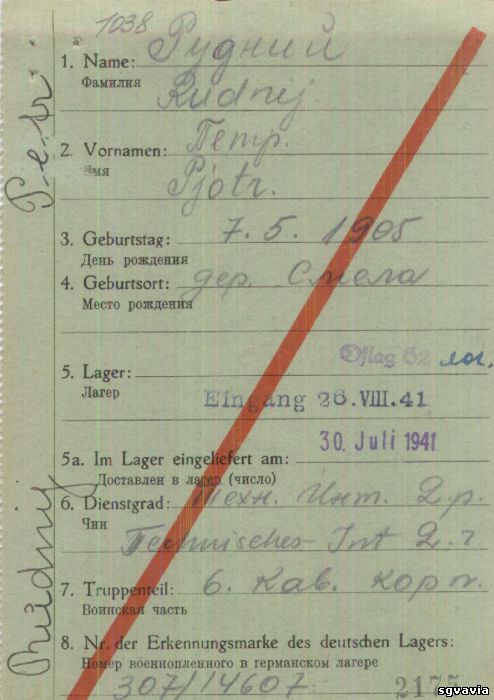 1038
Рудний
1. Name:
Фамилия
Rudnij
2. Vornamen: Петр.
Имя
Pjotr.
3. Geburtstag: 7. 5. 1905
День рождения
4. Geburtsort: дер. Смела
Место рождения
Oflag 62 лог.
5. Lager:
Лагер
Eingang 26.VIII.41
30. Juli 1941
5a. Im Lager eingeliefert am:
Доставлен в лагер (число)
6. Dienstgrad: Техн. Инт. 2. р.
Чин
Technisches-Int 2. r.
7. Truppenteil: 6. Кав. корп.
Воинская часть
8. Nr. der Erkennungsmarke des deutschen Lagers:
Номер военнопленного в германском лагере
307/14607
2175
P-e-tr.
Rüdnij
sgvavia